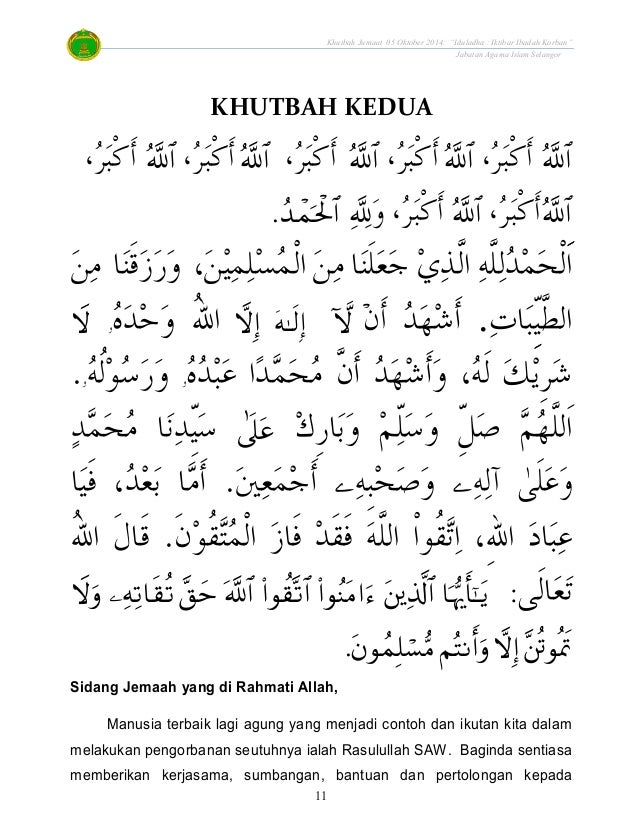 Khutbah Jumaat 05 Oktober 2014: "Iduladha : Iktibar Ibadah Korban"
Jabatan Agama Islam Selangor
KHUTBAH KEDUA
ٱللَّهُ أَكْبَرُ، ٱللَّهُ أَكْبَرُ، ٱللَّهُ أَكْبَرُ، ٱللَّهُ أَكْبَرُ، ٱللَّهُ أَكْبَرُ،
ٱللَّهُ أَكْبَرُ، ٱللَّهُ أَكْبَرُ، وَلِلَّهِ ٱلْحَمْدُ.
اَلْحَمْدُ لِلَّهِ الَّذِيْ جَعَلَنَا مِنَ الْمُسْلِمِيْنَ، وَرَزَقَنَا مِنَ
الطَّيِّبَاتِ. أَشْهَدُ أَنْ لَّآ إِلَـٰهَ إِلَّا اللهُ وَحْدَهُۥ لَا
شَرِيْكَ لَهُ، وَأَشْهَدُ أَنَّ مُحَمَّدًا عَبْدُهُۥ وَرَسُوْلُهُۥ.
اَللَّهُمَّ صَلِّ وَسَلِّمْ وَبَارِكْ عَلَىٰ سَيِّدِنَا مُحَمَّدٍ
وَعَلَىٰ آلِهِۦ وَصَحْبِهِۦ أَجْمَعِينَ. أَمَّا بَعْدُ، فَيَا
عِبَادَ اللهِ، اِتَّقُواْ اللَّهَ فَقَدْ فَازَ الْمُتَّقُوْنَ. قَالَ اللهُ
تَعَالَى: يَـٰٓأَيُّهَا ٱلَّذِينَ ءَامَنُواْ ٱتَّقُواْ ٱللَّهَ حَقَّ تُقَاتِهِۦ وَلَا
تَمُوتُنَّ إِلَّا وَأَنتُم مُّسْلِمُونَ.
Sidang Jemaah yang di Rahmati Allah,
Manusia terbaik lagi agung yang menjadi contoh dan ikutan kita dalam
melakukan pengorbanan seutuhnya ialah Rasulullah SAW. Baginda sentiasa
memberikan kerjasama, sumbangan, bantuan dan pertolongan kepada
11